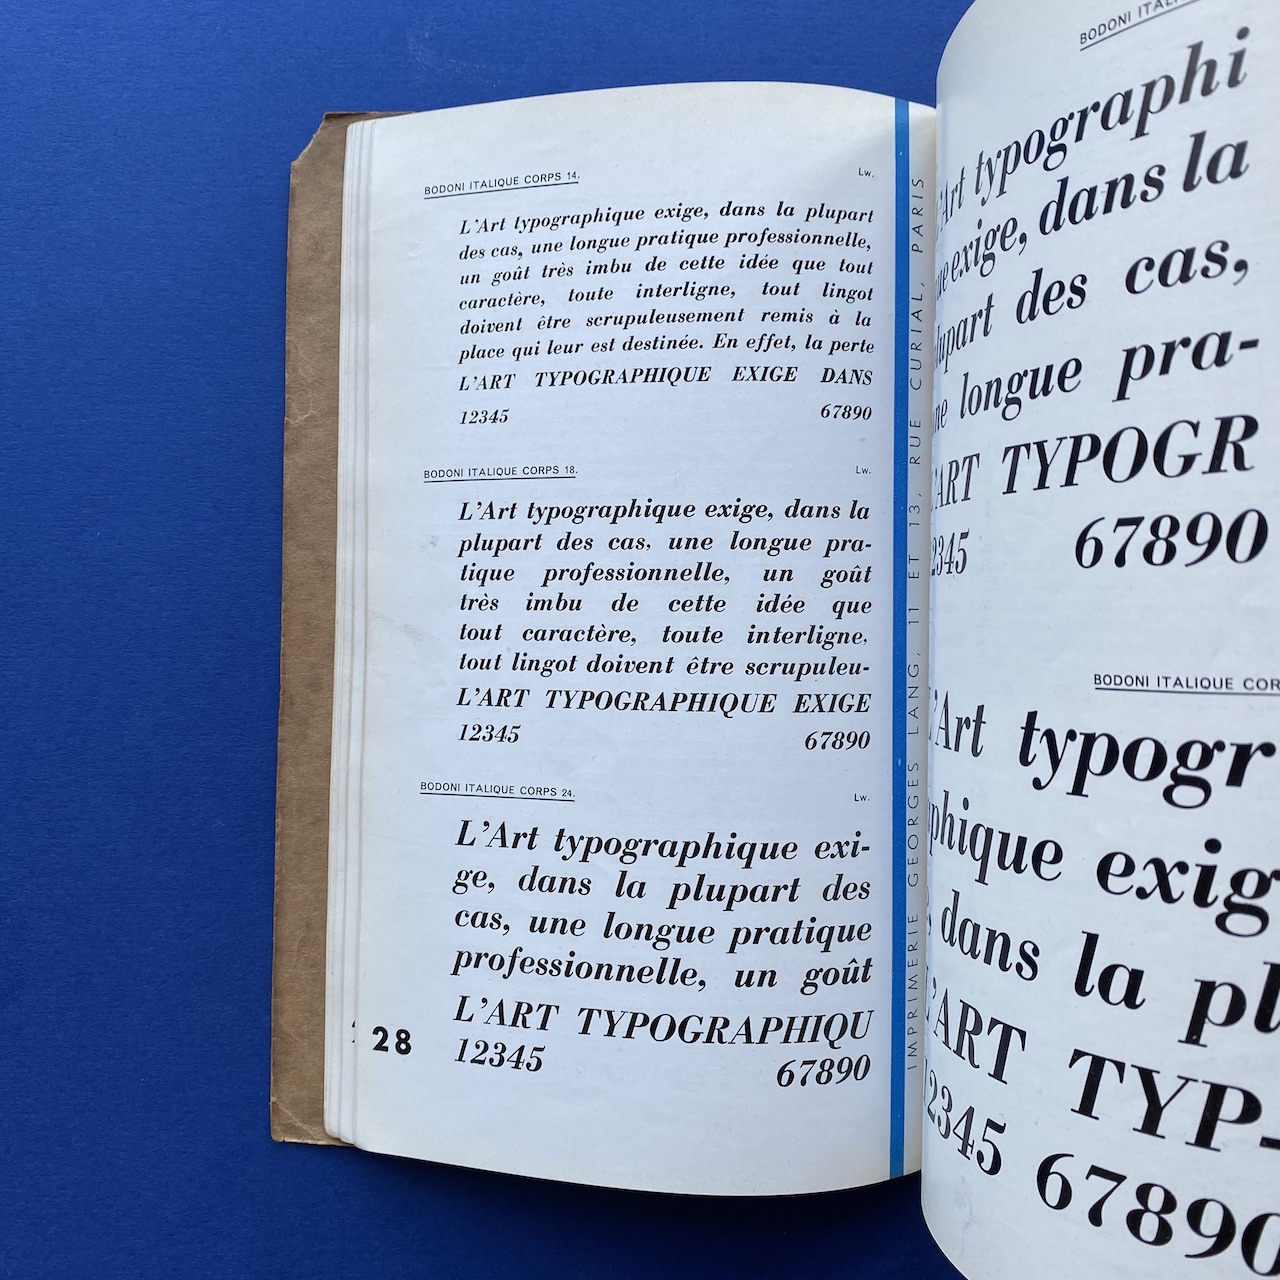 BODONI ITALIQUE CORPS 14.
Lw.
L'Art typographique exige, dans la plupart
des cas, une longue pratique professionnelle,
un goût très imbu de cette idée que tout
caractère, toute interligne, tout lingot
doivent être scrupuleusement remis à la
place qui leur est destinée. En effet, la perte
L'ART TYPOGRAPHIQUE EXIGE DANS
12345 67890
BODONI ITALIQUE CORPS 18.
Lw.
L'Art typographique exige, dans la
plupart des cas, une longue pra-
tique professionnelle, un goût
très imbu de cette idée que
tout caractère, toute interligne,
tout lingot doivent être scrupuleu-
L'ART TYPOGRAPHIQUE EXIGE
12345 67890
BODONI ITALIQUE CORPS 24.
Lw.
L'Art typographique exi-
ge, dans la plupart des
cas, une longue pratique
professionnelle, un goût
L'ART TYPOGRAPHIQU
12345 67890
28
IMPRIMERIE GEORGES LANG, 11 ET 13, RUE CURIAL, PARIS
BODONI ITALI
L'Art typographi
que exige, dans la
plupart des cas,
une longue pra-
L'ART TYPOGR
12345 67890
BODONI ITALIQUE COR
L'Art typogr
phique exig
dans la pl
L'ART TYP-
12345 67890